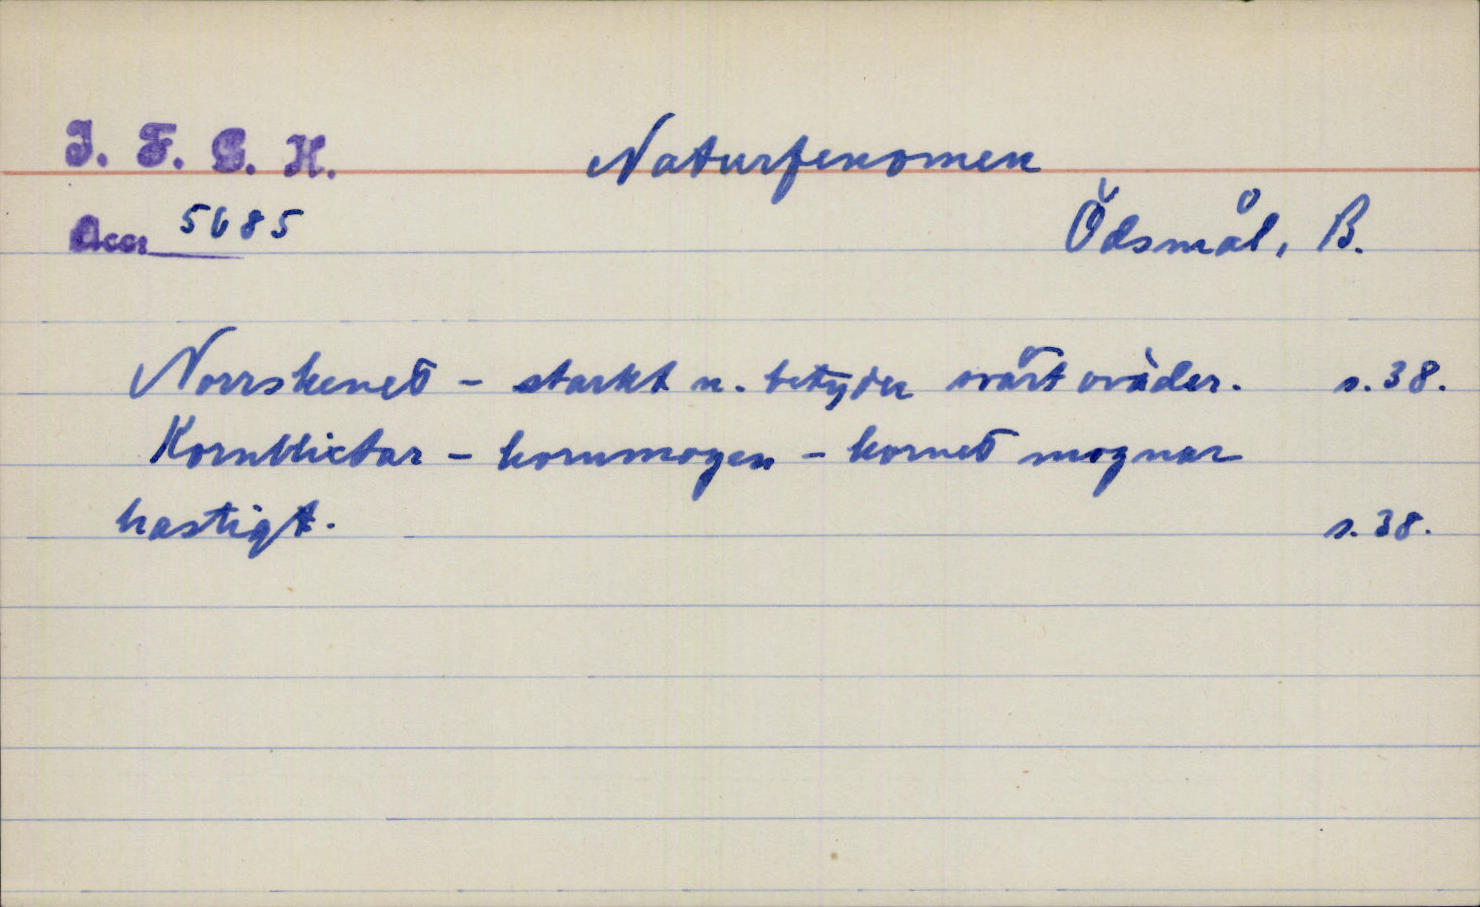 I. F. G. H. Naturfenomen
Acc. 5685 Ödsmål, B.
Norrskenet - starkt n. betyder svårt oväder. s. 38.
Kornblixtar - kornmogen - kornet mognar
hastigt. s. 38.